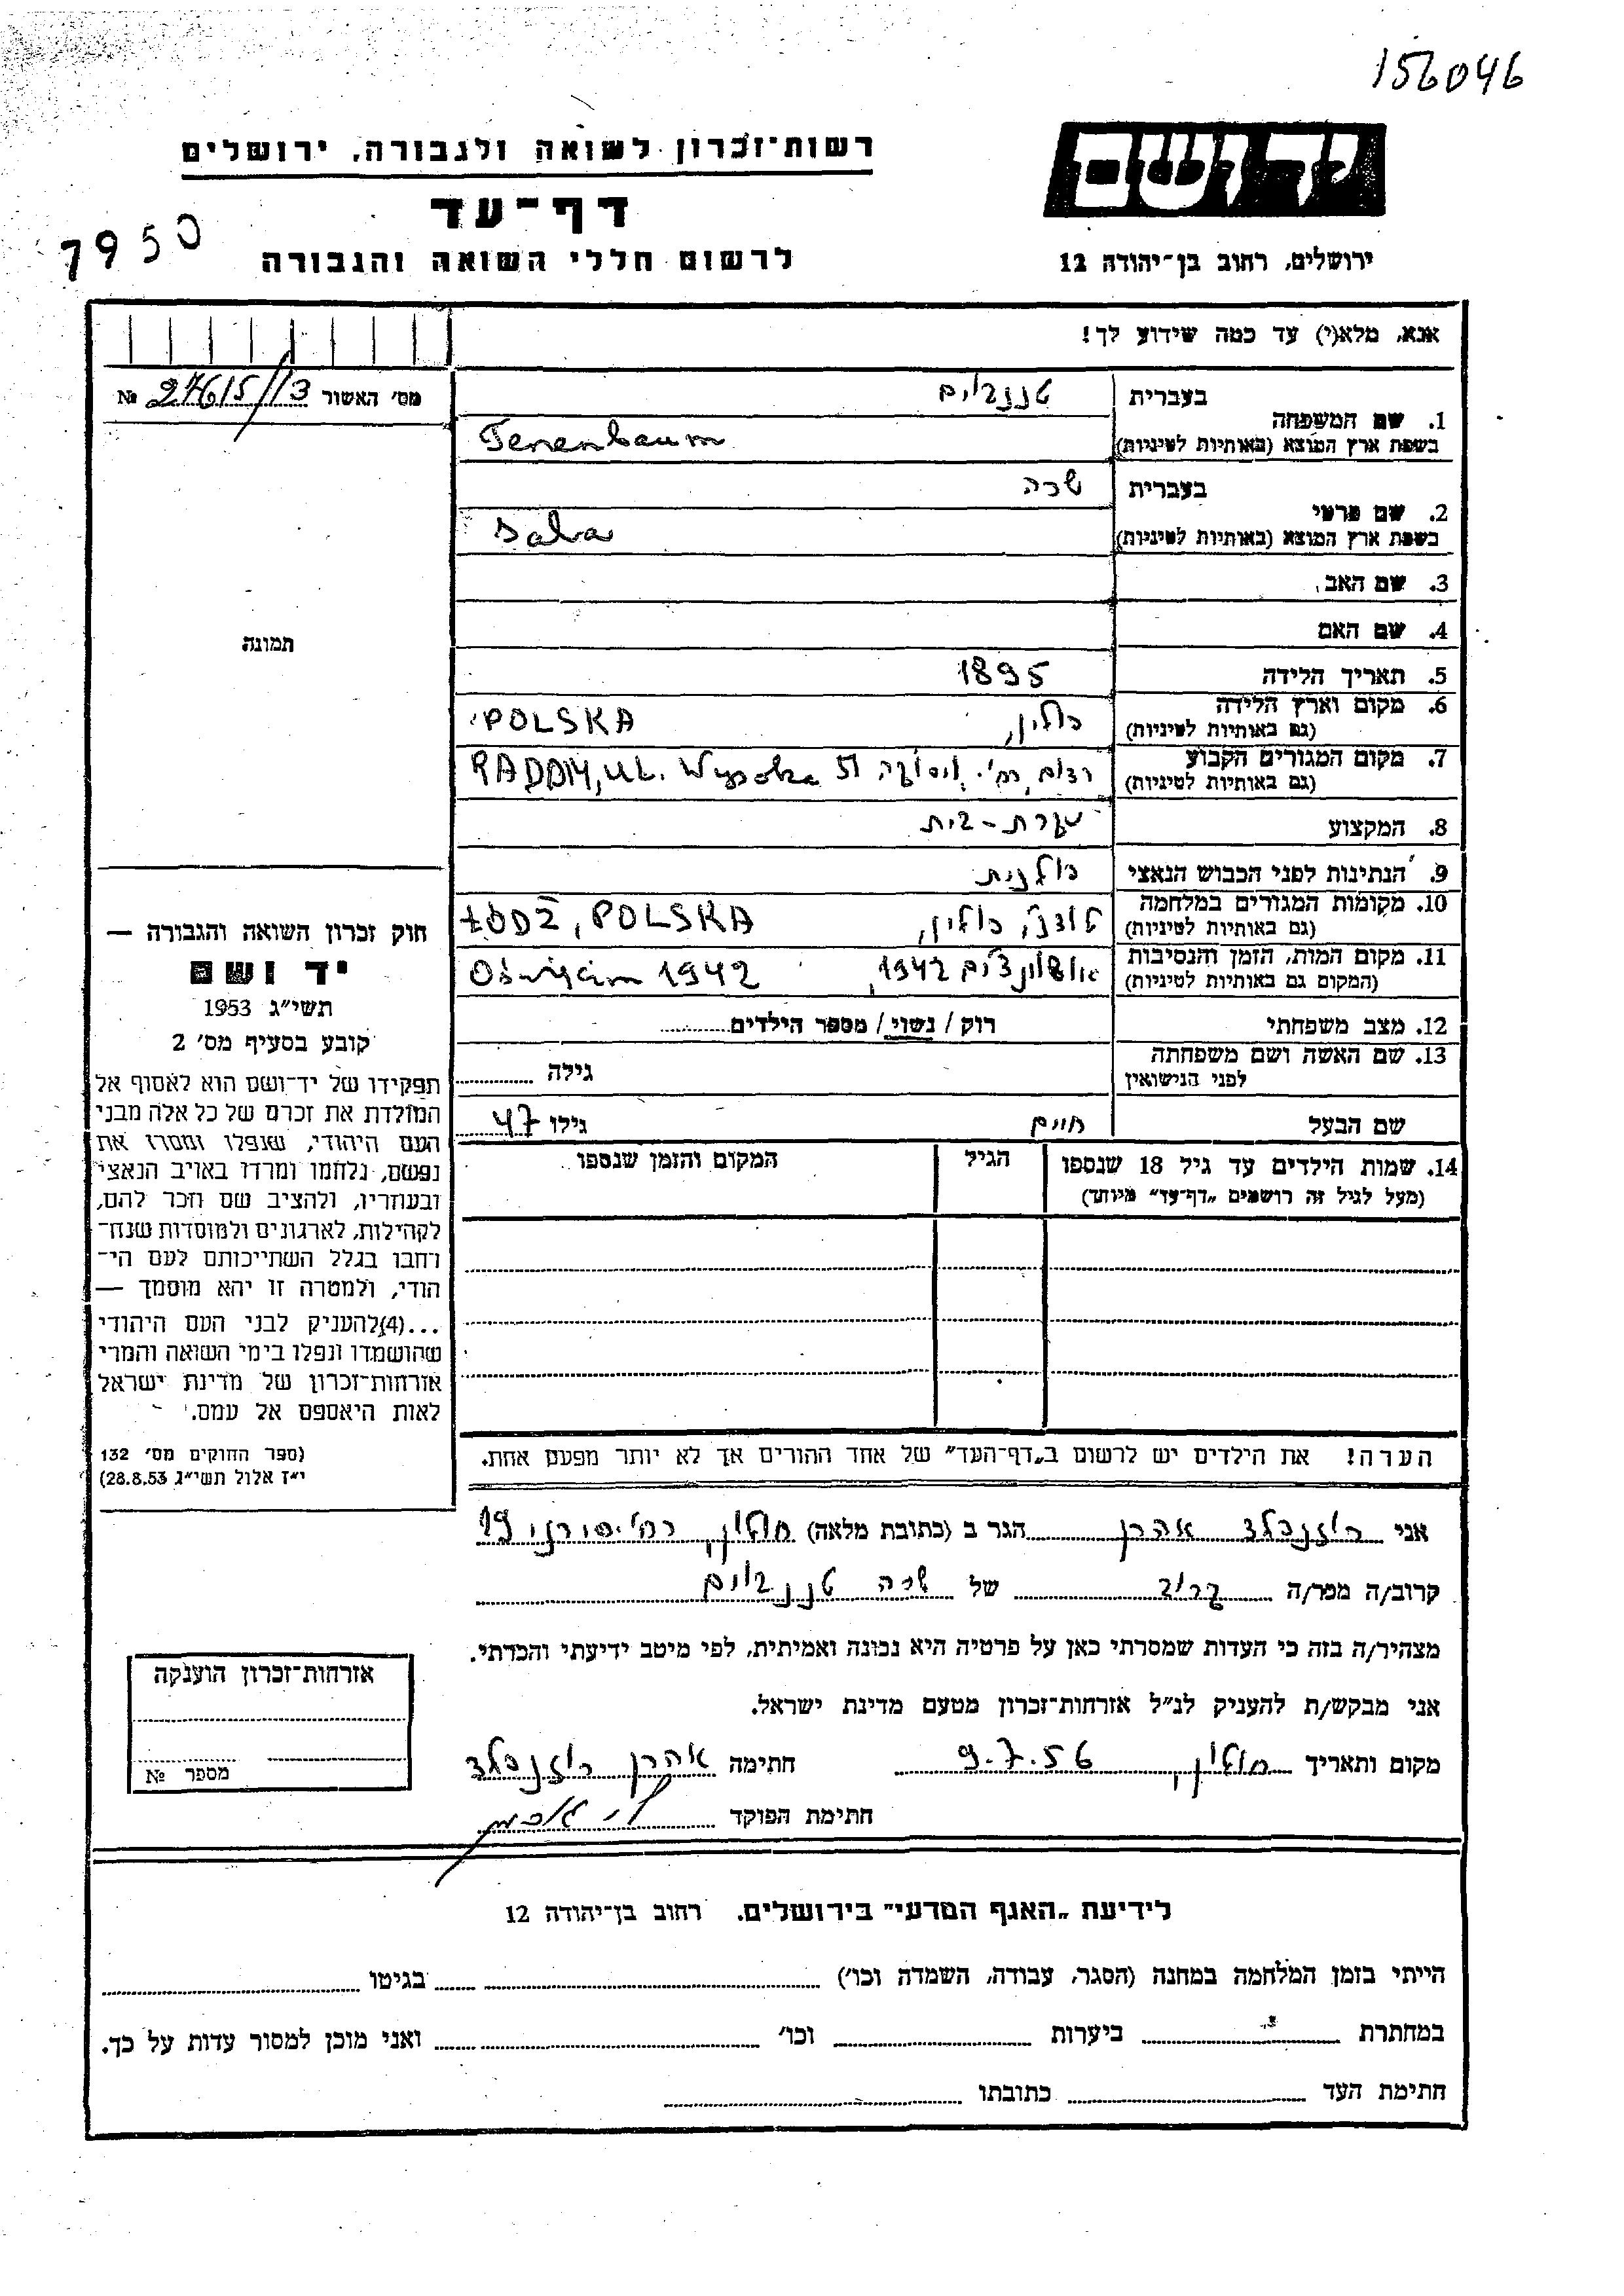 156046
יד ושם
רשות־זכרון לשואה ולגבורה, ירושלים
דף־עד
7950
לרשום חללי השואה והגבורה
ירושלים, רחוב בן־יהודה 12
אנא, מלא(י) עד כמה שידוע לך!
מס׳ האשור 27615/13 №
1. שם המשפחה
בעברית טננבוים
בשפת ארץ המוצא (באותיות לטיניות) Tenenbaum
2. שם פרטי
בעברית שרה
בשפת ארץ המוצא (באותיות לטיניות) Sala
3. שם האב
4. שם האם
תמונה
5. תאריך הלידה 1895
6. מקום וארץ הלידה פולין, POLSKA
(גם באותיות לטיניות)
7. מקום המגורים הקבוע רדום, רח׳ ויסוקה 51 RADOM, UL. Wysoka
(גם באותיות לטיניות)
8. המקצוע עקרת-בית
9. הנתינות לפני הכבוש הנאצי פולנית
10. מקומות המגורים במלחמה לודז׳, פולין, ŁÓDŹ, POLSKA
(גם באותיות לטיניות)
11. מקום המות, הזמן והנסיבות 1942, Oświęcim 1942
(המקום גם באותיות לטיניות)
12. מצב משפחתי רוק / נשוי / מספר הילדים
13. שם האשה ושם משפחתה גילה
לפני הנישואין
שם הבעל חיים גילו 47
14. שמות הילדים עד גיל 18 שנספו הגיל המקום והזמן שנספו
(מעל לגיל זה רושמים „דף־עד” מיוחד)
חוק זכרון השואה והגבורה —
יד ושם
תשי״ג 1953
קובע בסעיף מס׳ 2
תפקידו של יד־ושם הוא לאסוף אל
המולדת את זכרם של כל אלה מבני
העם היהודי, שנפלו ומסרו את
נפשם, נלחמו ומרדו באויב הנאצי
ובעוזריו, ולהציב שם וזכר להם,
לקהילות, לארגונים ולמוסדות שנח־
רחבו בגלל השתייכותם לעם הי־
הודי, ולמטרה זו יהא מוסמך —
...(4)להעניק לבני העם היהודי
שהושמדו ונפלו בימי השואה והמרי
אזרחות־זכרון של מדינת ישראל
לאות היאספם אל עמם.
(ספר החוקים מס׳ 132
י״ז אלול תשי״ג 28.8.53)
הערה! את הילדים יש לרשום ב„דף־העד” של אחד ההורים אך לא יותר מפעם אחת.
אני רוזנבלד אהרן הגר ב (כתובת מלאה) חולון, רח׳ 19
קרוב/ה מכר/ה קרוב של שרה טננבוים
מצהיר/ה בזה כי העדות שמסרתי כאן על פרטיה היא נכונה ואמיתית, לפי מיטב ידיעתי והכרתי.
אני מבקש/ת להעניק לנ״ל אזרחות־זכרון מטעם מדינת ישראל.
מקום ותאריך חולון, 9.7.56 חתימה אהרן רוזנבלד
חתימת הפוקד
אזרחות־זכרון הוענקה
מספר №
לידיעת „האגף המדעי” בירושלים. רחוב בן־יהודה 12
הייתי בזמן המלחמה במחנה (הסגר, עבודה, השמדה וכו׳) בגיטו
במחתרת ביערות וכו׳ ואני מוכן למסור עדות על כך.
חתימת העד כתובתו